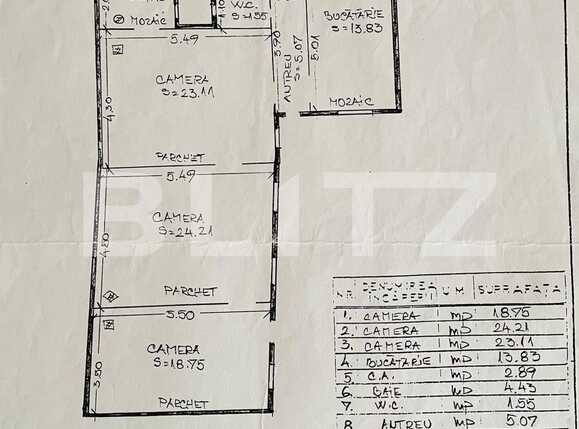 W.C.
S=1.55
MOZAIC
BUCĂTĂRIE
S=13.83
5.49
3.90
AUTREU
S=5.07
5.01
CAMERA
S=23.11
4.30
MOZAIC
PARCHET
5.49
BLITZ
CAMERA
S=24.21
4.80
PARCHET
5.50
CAMERA
S=18.75
3.80
PARCHET
NR. DENUMIREA ÎNCĂPERII U.M. SUPRAFAȚA
1. CAMERA mp 18.75
2. CAMERA mp 24.21
3. CAMERA mp 23.11
4. BUCĂTĂRIE mp 13.83
5. C.A. mp 2.89
6. BAIE mp 4.43
7. W.C. mp 1.55
8 AUTREU mp 5.07